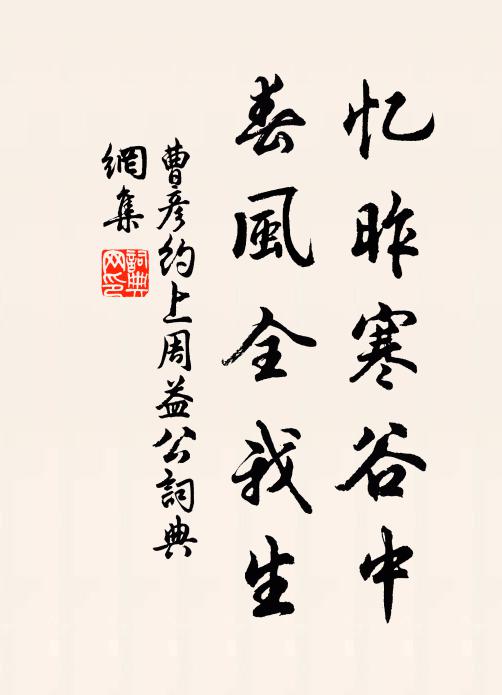 忆昨寒谷中
春風全我生
曹彦约上周益公詞典
網集
詞典網印